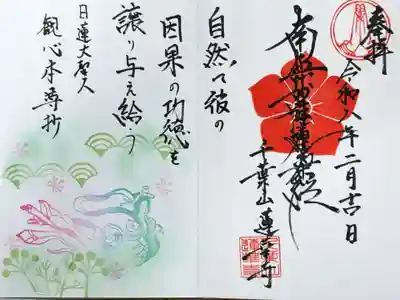 奉拝
令和八年二月吉日
南無妙法蓮華経
千葉山 蓮華寺
自然に彼の
因果の功徳を
譲り与え給う
日蓮大聖人
観心本尊抄